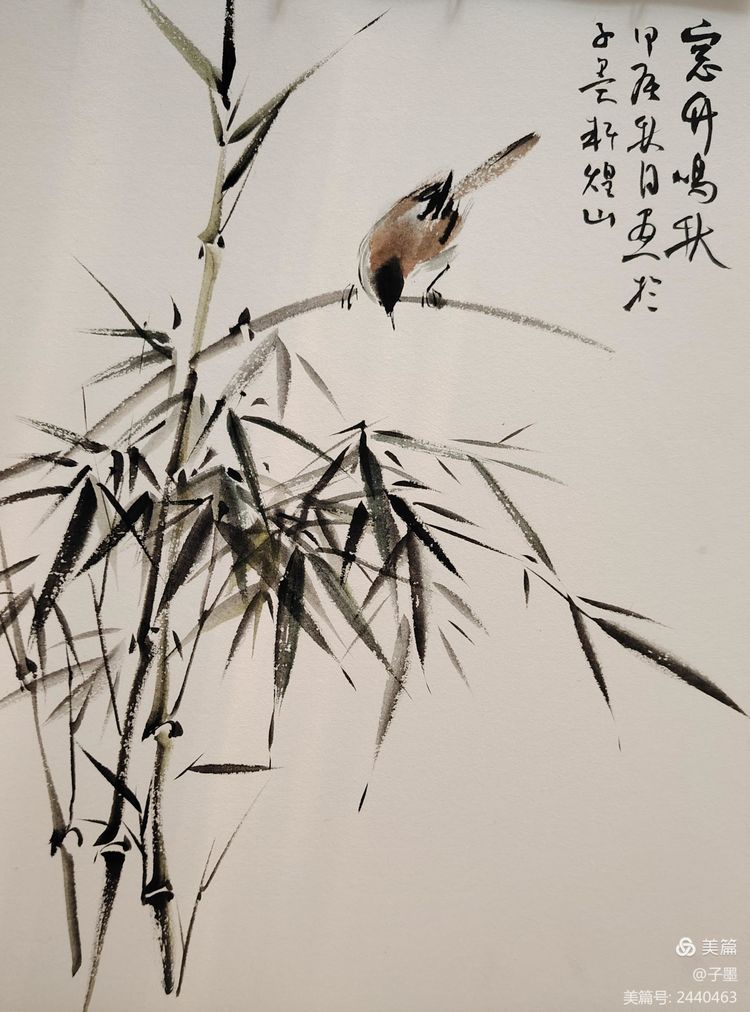 窓鳴秋
甲辰秋日画於
子墨轩煌山
美篇
@子墨
美篇号: 2440463